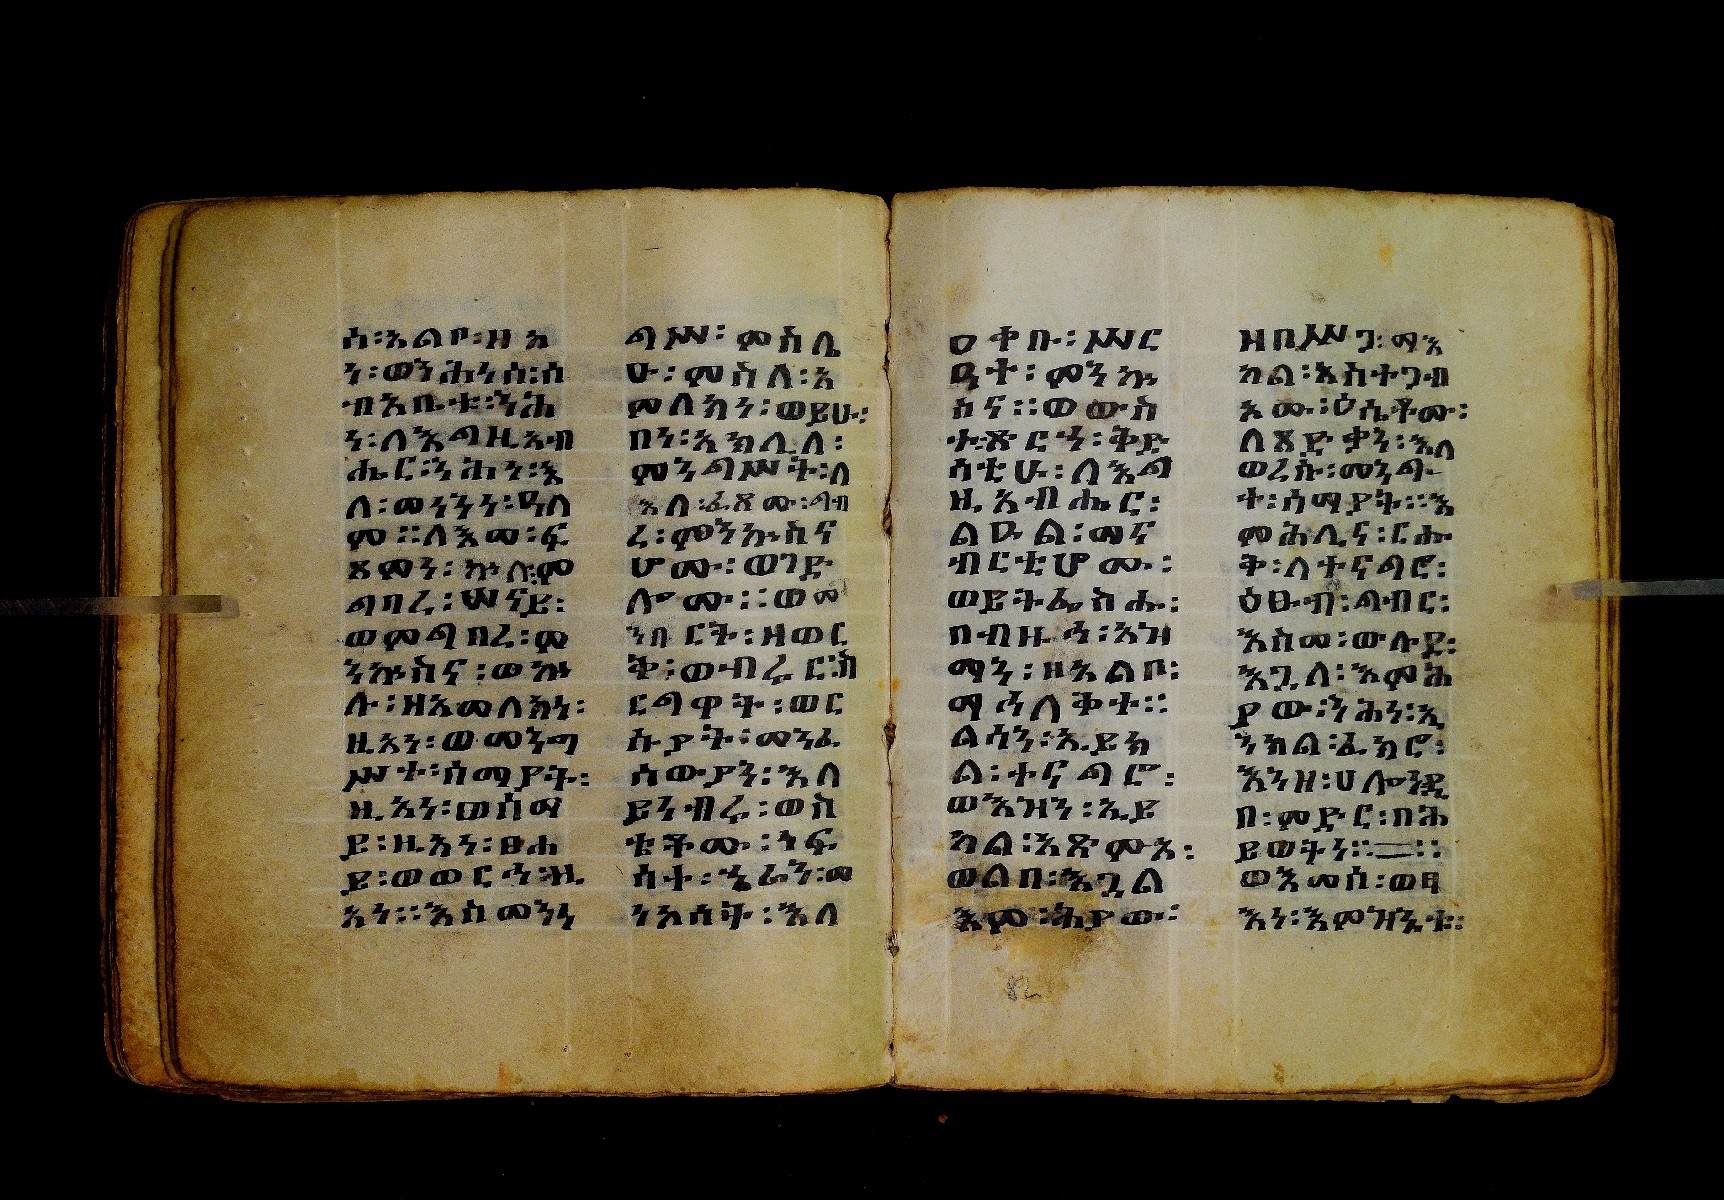 ሰ፡አልቦ፡ዘአ
ን፡ወንሕነሰ፡ሰ
ብእ፡ቡቱ፡ንሕ
ን፡ለእግዚአብ
ሔር፡ንሕነ፡እ
ለ፡መነንነ፡ዓለ
መ።ለእመ፡ፍ
ጹማን፡ኵሉ፡ም
ግባረ፡ሠናይ፡
ወምግባረ፡ም
ንኵስና፡ወኵ
ሉ፡ዘአመለክነ፡
ዚአነ፡ወመንግ
ሥተ፡ሰማያት፡
ዚአነ፡ወሰማ
ይ፡ዚአነ፡ፀሐ
ይ፡ወወርኅ፡ዚ
አነ።እስመንነ
ግሥ፡ምስሌ
ሁ፡ምስለ፡አ
ምላክነ፡ወይሁ፡
በነ፡አክሊለ፡
መንግሥት፡ለ
እለ፡ፈጸሙ፡ገብ
ረ፡ምንኵስና
ሆሙ፡ወገድ
ሎሙ።ወመ
ንበርት፡ዘወር
ቅ፡ወብሩር፡ከ
ርጋዋት፡ወር
ሱያት፡መንፈ
ሰውያን፡እለ
ይነብሩ፡ወስ
ቴቶሙ፡ነፍ
ሳተ፡ኄራን፡መ
ንእሰት፡እለ
ዐቀቡ፡ሥር
ዓተ፡ምንኵ
ስና።ወውስ
ተ፡ጽርን፡ቅድ
ሳቲሁ፡ለእግ
ዚአብሔር፡
ልዑል፡መና
ብርቲሆሙ፡
ወይትፌሥሑ፡
በብዙኅ፡እዝ
ማን፡ዘእልቦ፡
ማኅለቅተ።
ልሳን፡ኢይክ
ል፡ተናግሮ፡
ወእዝን፡ኢይ
ክል፡አጽምአ፡
ወልበ፡እጓል
እመ፡ሕያው፡
ዘበሥጋ፡ማእ
ከል፡አስተጋብ
እሙ፡ዕሴቶሙ፡
ለጻድቃን፡እለ
ወረሱ፡መንግ
ተ፡ሰማያት።እ
ምሕሊና፡ርሑ
ቅ፡ለተናግሮ፡
ዕፁብ፡ገብር፡
እስመ፡ውሉደ፡
እጓለ፡እመሕ
ያው፡ንሕነ፡ኢ
ንክል፡ፈክሮ፡
እንዘ፡ሀሎንዲ
በ፡ምድር፡በሕ
ይወትነ።
ወእመሰ፡ወፃ
እነ፡እምዝንቱ፡